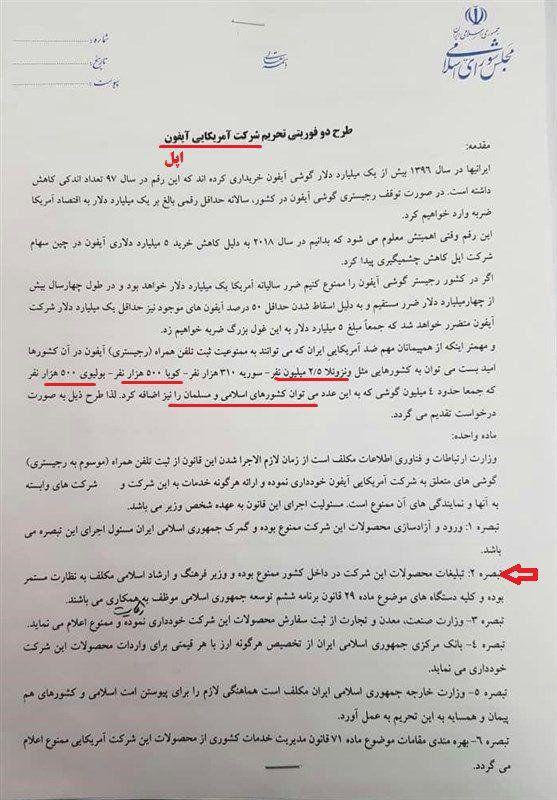 جمهوری اسلامی ایران
مجلس شورای اسلامی
شماره:
تاریخ:
پیوست:
طرح دو فوریتی تحریم شرکت آمریکایی آیفون
اپل
مقدمه:
ایرانیها در سال ۱۳۹۶ بیش از یک میلیارد دلار گوشی آیفون خریداری کرده اند که این رقم در سال ۹۷ تعداد اندکی کاهش
داشته است. در صورت توقف رجیستری گوشی آیفون در کشور، سالانه حداقل رقمی بالغ بر یک میلیارد دلار به اقتصاد آمریکا
ضربه وارد خواهیم کرد.
این رقم وقتی اهمیتش معلوم می شود که بدانیم در سال ۲۰۱۸ به دلیل کاهش خرید ۵ میلیارد دلاری آیفون در چین سهام
شرکت اپل کاهش چشمگیری پیدا کرد.
اگر در کشور رجیستر گوشی آیفون را ممنوع کنیم ضرر سالیانه آمریکا یک میلیارد دلار خواهد بود و در طول چهارسال بیش
از چهارمیلیارد دلار ضرر مستقیم و به دلیل اسقاط شدن حداقل ۵۰ درصد آیفون های موجود نیز حداقل یک میلیارد دلار شرکت
آیفون متضرر خواهد شد که جمعاً مبلغ ۵ میلیارد دلار به این غول بزرگ ضربه خواهیم زد.
و مهمتر اینکه از همپیمانان مهم ضد آمریکایی ایران که می توانند به ممنوعیت ثبت تلفن همراه (رجیستری) آیفون در آن کشورها
امید بست می توان به کشورهایی مثل ونزوئلا ۲/۵ میلیون نفر- سوریه ۳۱۰ هزار نفر- کوبا ۵۰۰ هزار نفر- بولیوی ۵۰۰ هزار نفر
که جمعا حدود ۴ میلیون گوشی که به این عدد می توان کشورهای اسلامی و مسلمان را نیز اضافه کرد. لذا طرح ذیل به صورت
درخواست تقدیم می گردد.
ماده واحده:
وزارت ارتباطات و فناوری اطلاعات مکلف است از زمان لازم الاجرا شدن این قانون از ثبت تلفن همراه (موسوم به رجیستری)
گوشی های متعلق به شرکت آمریکایی آیفون خودداری نموده و ارائه هرگونه خدمات به این شرکت و شرکت های وابسته
به آنها و نمایندگی های آن ممنوع است. مسئولیت اجرای این قانون به عهده شخص وزیر می باشد.
تبصره ۱: ورود و آزادسازی محصولات این شرکت ممنوع بوده و گمرک جمهوری اسلامی ایران مسئول اجرای این تبصره می
باشد.
تبصره ۲: تبلیغات محصولات این شرکت در داخل کشور ممنوع بوده و وزیر فرهنگ و ارشاد اسلامی مکلف به نظارت مستمر
بوده و کلیه دستگاه های موضوع ماده ۲۹ قانون برنامه ششم توسعه جمهوری اسلامی موظف به همکاری می باشند.
تبصره ۳- وزارت صنعت، معدن و تجارت از ثبت سفارش محصولات این شرکت خودداری نموده و ممنوع اعلام می نماید.
تبصره ۴- بانک مرکزی جمهوری اسلامی ایران از تخصیص هرگونه ارز با هر قیمتی برای واردات محصولات این شرکت
خودداری می نماید.
تبصره ۵- وزارت خارجه جمهوری اسلامی ایران مکلف است هماهنگی لازم را برای پیوستن امت اسلامی و کشورهای هم
پیمان و همسایه به این تحریم به عمل آورد.
تبصره ۶- بهره مندی مقامات موضوع ماده ۷۱ قانون مدیریت خدمات کشوری از محصولات این شرکت آمریکایی ممنوع اعلام
می گردد.